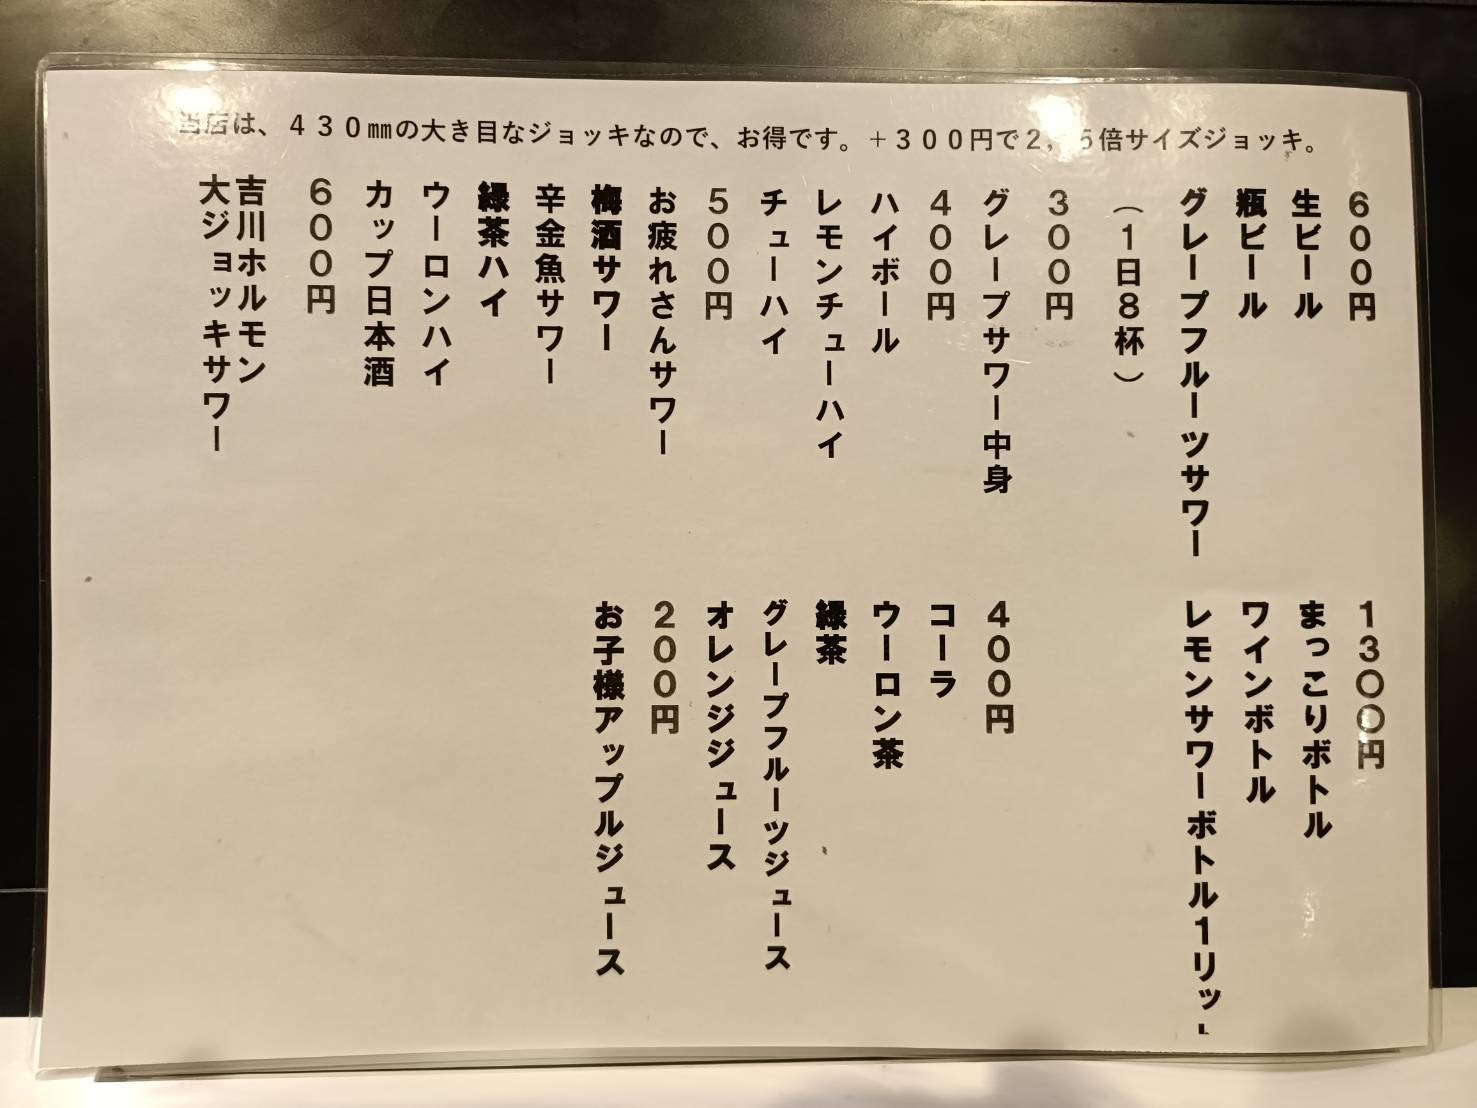 当店は、４３０㎜の大き目なジョッキなので、お得です。＋３００円で２，５倍サイズジョッキ。
６００円
生ビール
瓶ビール
グレープフルーツサワー
（１日８杯）
３００円
グレープサワー中身
４００円
ハイボール
レモンチューハイ
チューハイ
５００円
お疲れさんサワー
梅酒サワー
辛金魚サワー
緑茶ハイ
ウーロンハイ
カップ日本酒
６００円
吉川ホルモン
大ジョッキサワー
１３〇〇円
まっこりボトル
ワインボトル
レモンサワーボトル１リット
４００円
コーラ
ウーロン茶
緑茶
グレープフルーツジュース
オレンジジュース
２００円
お子様アップルジュース